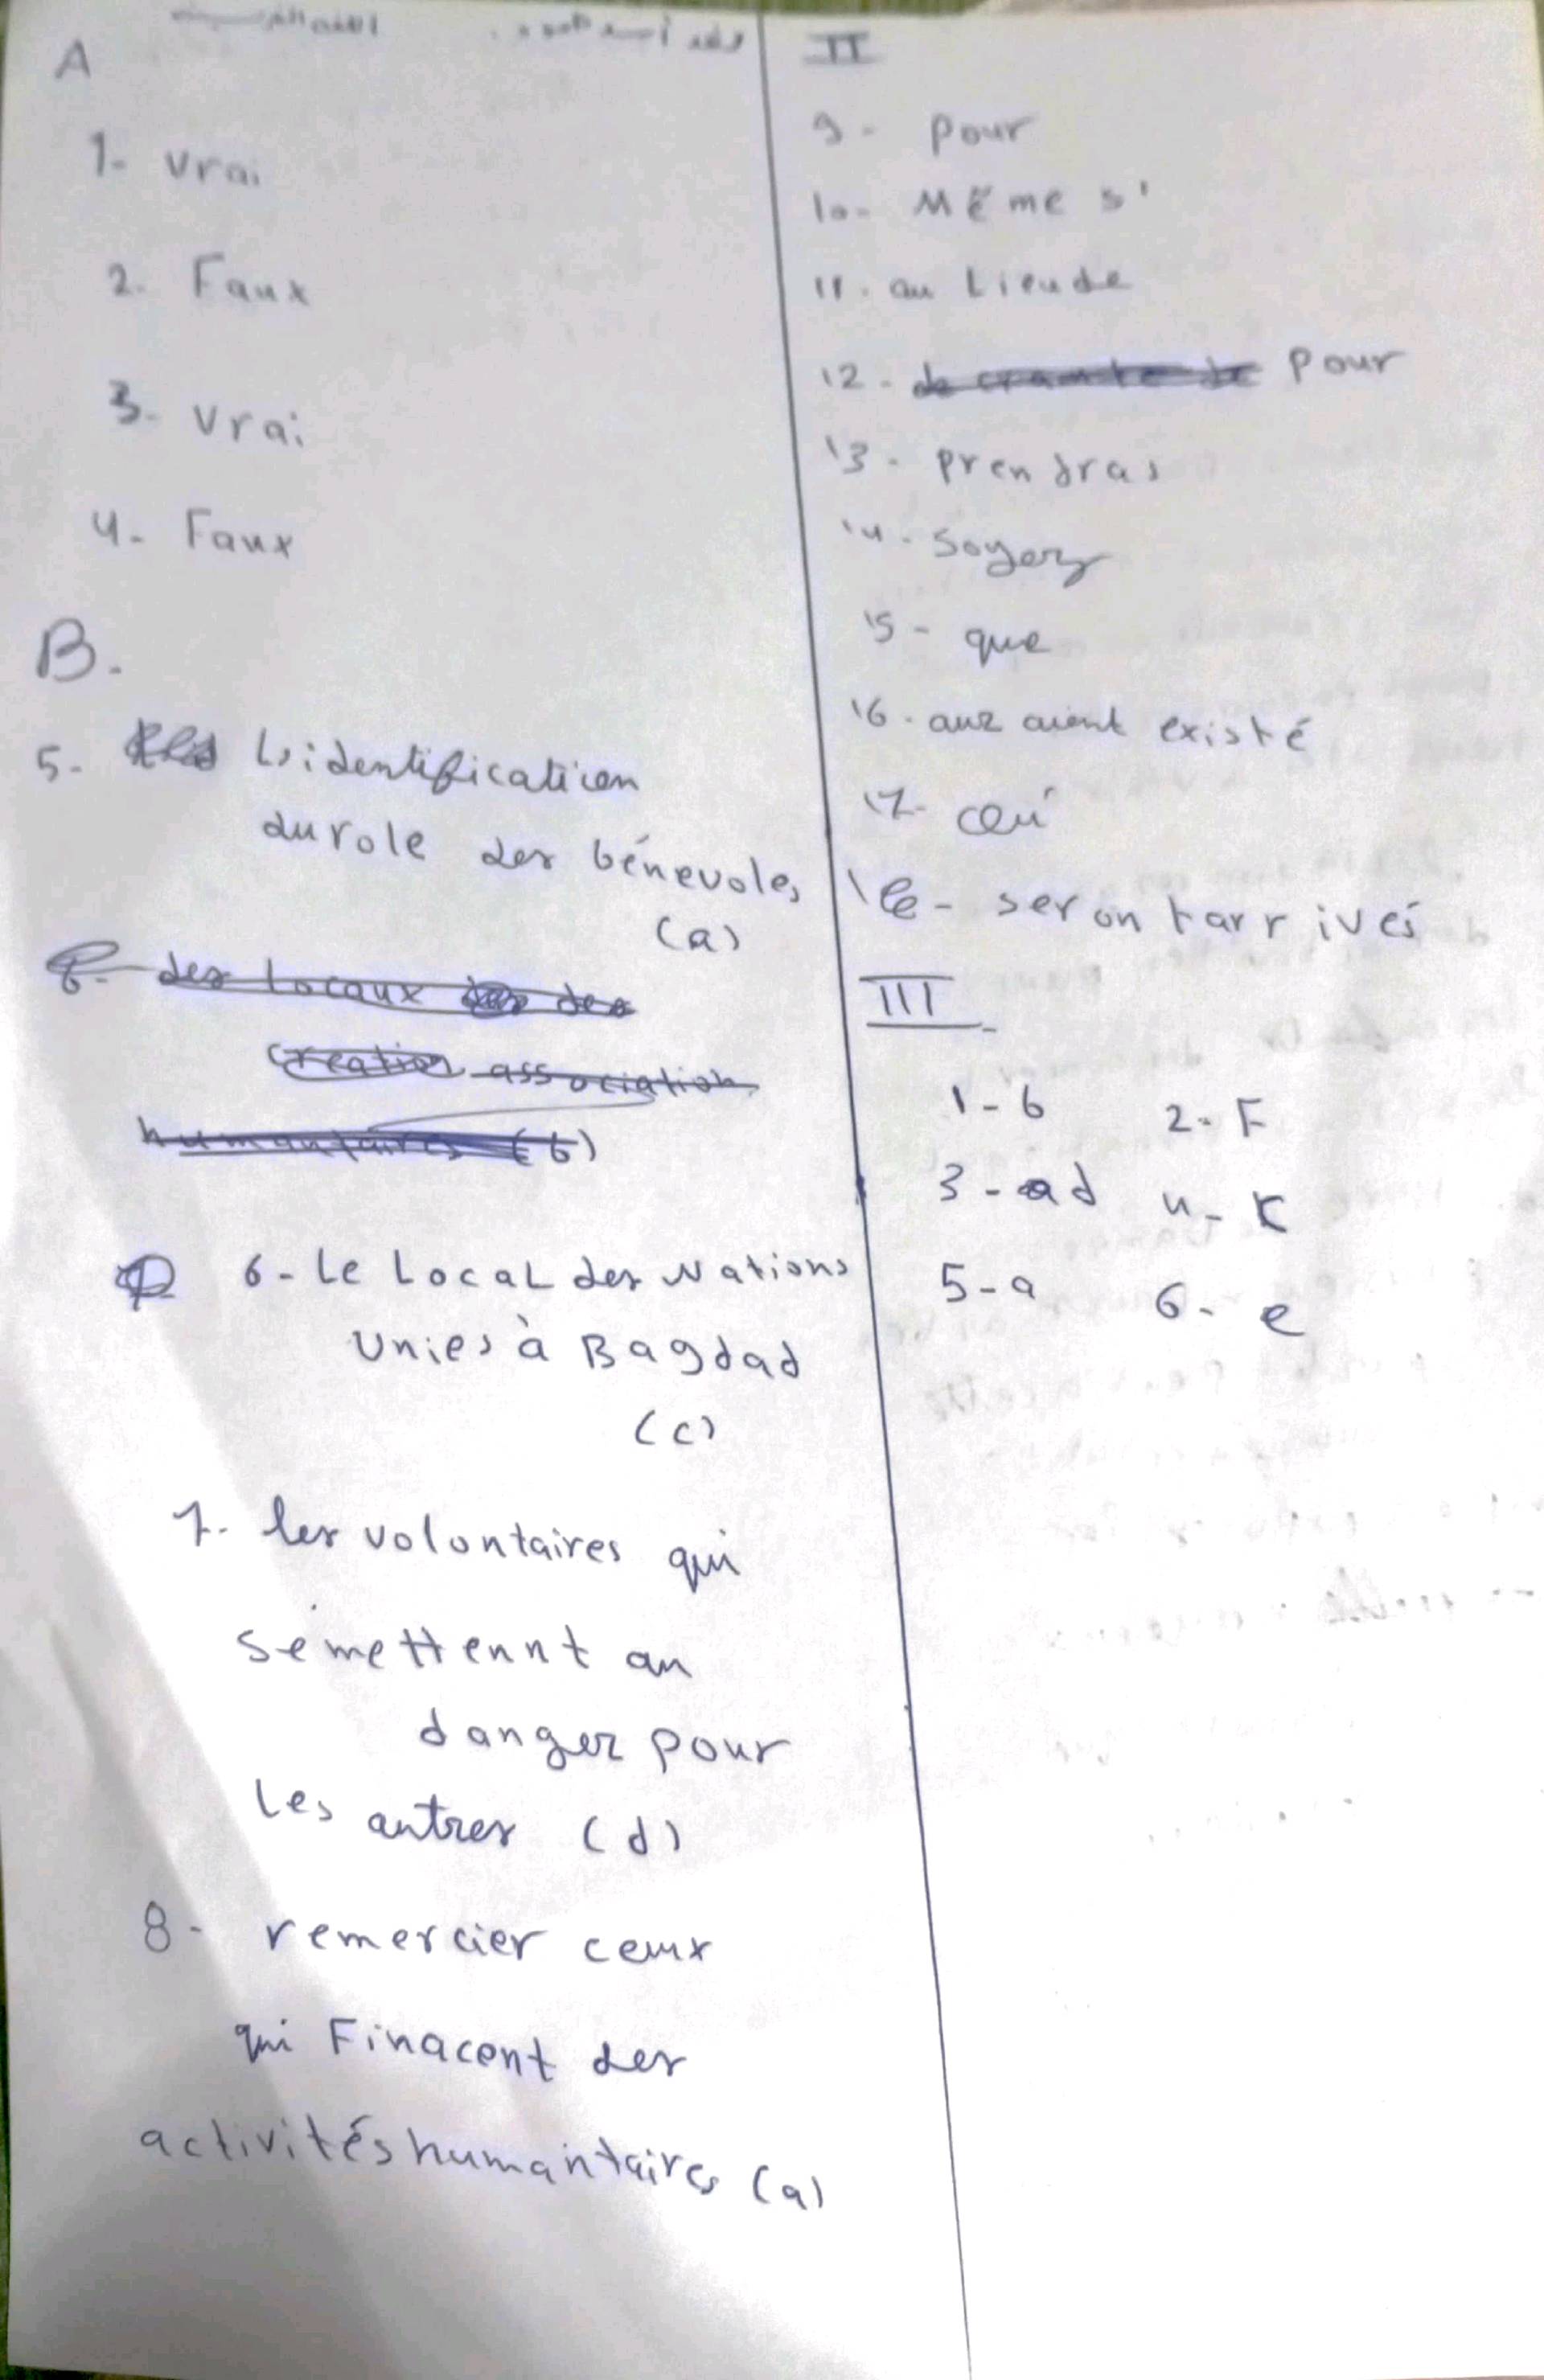 A
1- vrai
2. Faux
3- vrai
4- Faux
B.
5- L'identification
du role des bénevoles
(a)
des Locaux des
création association
humantaires (b)
6- Le Local des Nations
Unies à Bagdad
(c)
7- les volontaires qui
se mettennt au
danger pour
les autres (d)
8- remercier ceux
qui Finacent des
activités humantaires (a)
II
9- pour
10- Même s'
11. au Lieu de
12- pour
13- prendras
14- soyez
15- que
16- auraient existé
17-
18- seront arrivés
III
1-b 2- F
3- d 4- K
5-a 6- e